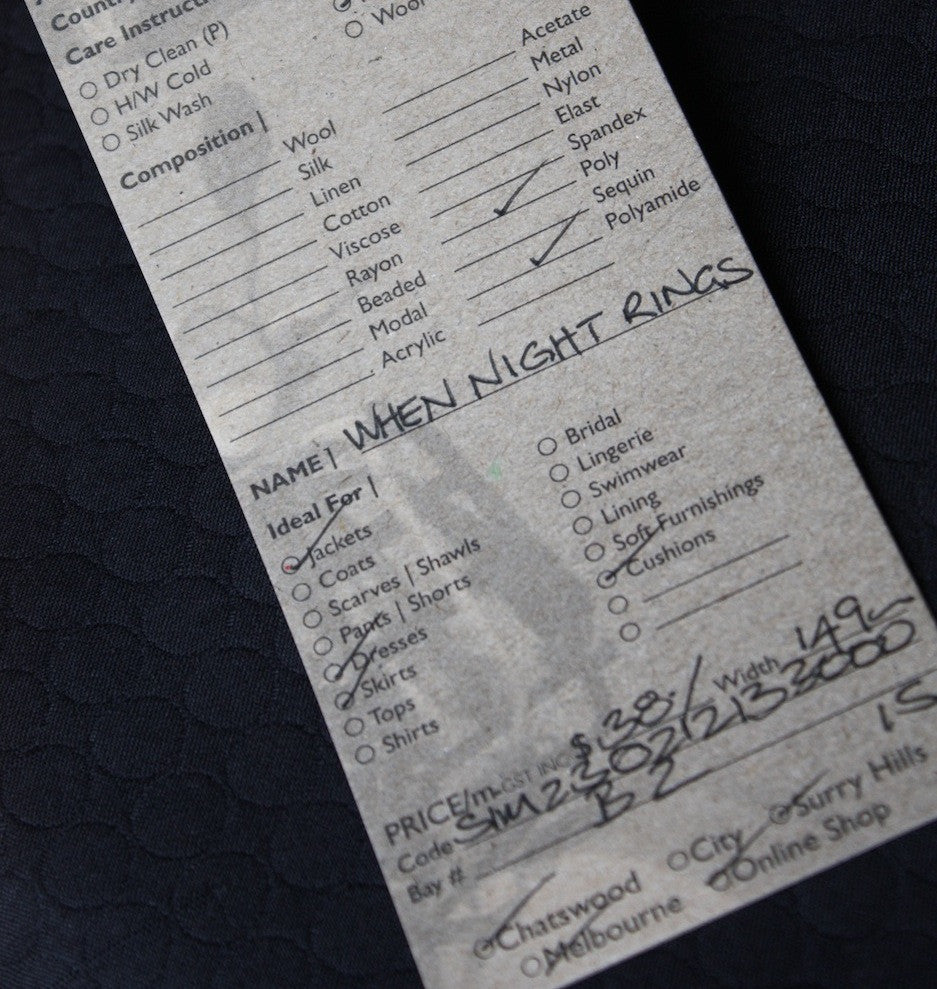 Country
Care Instruct
Dry Clean (P)
H/W Cold
Silk Wash
Wool
Composition |
Wool
Silk
Linen
Cotton
Viscose
Rayon
Beaded
Modal
Acrylic
Acetate
Metal
Nylon
Elast
Spandex
Poly
Sequin
Polyamide
NAME | WHEN NIGHT RINGS
Ideal For |
Jackets
Coats
Scarves | Shawls
Pants | Shorts
Dresses
Skirts
Tops
Shirts
Bridal
Lingerie
Swimwear
Lining
Soft Furnishings
Cushions
PRICE/m GST INC $ 38.- Width 149
Code
Bay # B 2 15
Chatswood City Surry Hills
Melbourne Online Shop